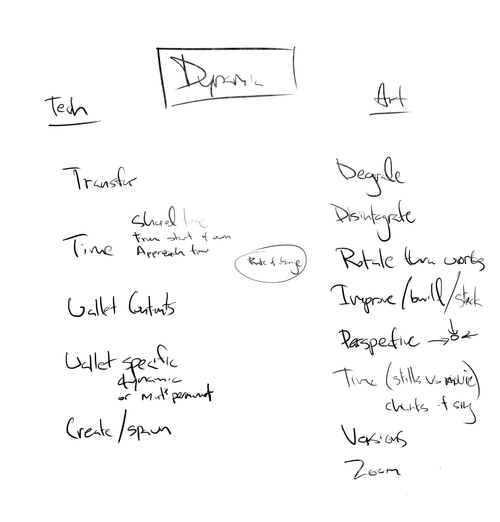 Dynamic
Tech
Art
Transfer
Shared time
Time
from start of own
Approach time
Wallet Contents
Wallet specific
dynamic
or permanent
Create/spawn
Rate of change
Degrade
Disintegrate
Rotate thru works
Improve/build/stack
Perspective
Time (stills vs movie)
chunks of
Versions
Zoom